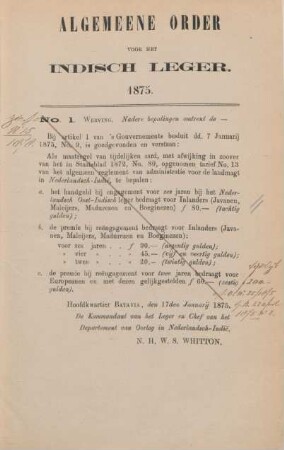 ALGEMEENE ORDER
VOOR HET
INDISCH LEGER.
1875.
No. 1. WERVING. Nadere bepalingen omtrent de —
Bij artikel 1 van 's Gouvernements besluit dd. 7 Januarij
1875, No. 9, is goedgevonden en verstaan:
Als maatregel van tijdelijken aard, met afwijking in zoover
van het in Staatsblad 1872, No. 89, opgenomen tarief No. 13
van het algemeen reglement van administratie voor de landmagt
in Nederlandsch-Indië, te bepalen:
a. het handgeld bij engagement voor zes jaren bij het Neder-
landsch Oost-Indisch leger bedraagt voor Inlanders (Javanen,
Maleijers, Madurezen en Boeginezen) f 80.— (tachtig
gulden);
b. de premie bij reëngagement voor Inlanders (Java-
nen, Maleijers, Madurezen en Boeginezen):
voor zes jaren . . f 90.— (negentig gulden);
" vier " . . " 45.— (vijf en veertig gulden);
" twee " . . " 20.— (twintig gulden);
c. de premie bij reëngagement voor twee jaren bedraagt voor
Europeanen en met dezen gelijkgestelden f 60.— (zestig
gulden).
Hoofdkwartier BATAVIA, den 17den Januarij 1875.
De Kommandant van het Leger en Chef van het
Departement van Oorlog in Nederlandsch-Indië,
N. H. W. S. WHITTON.